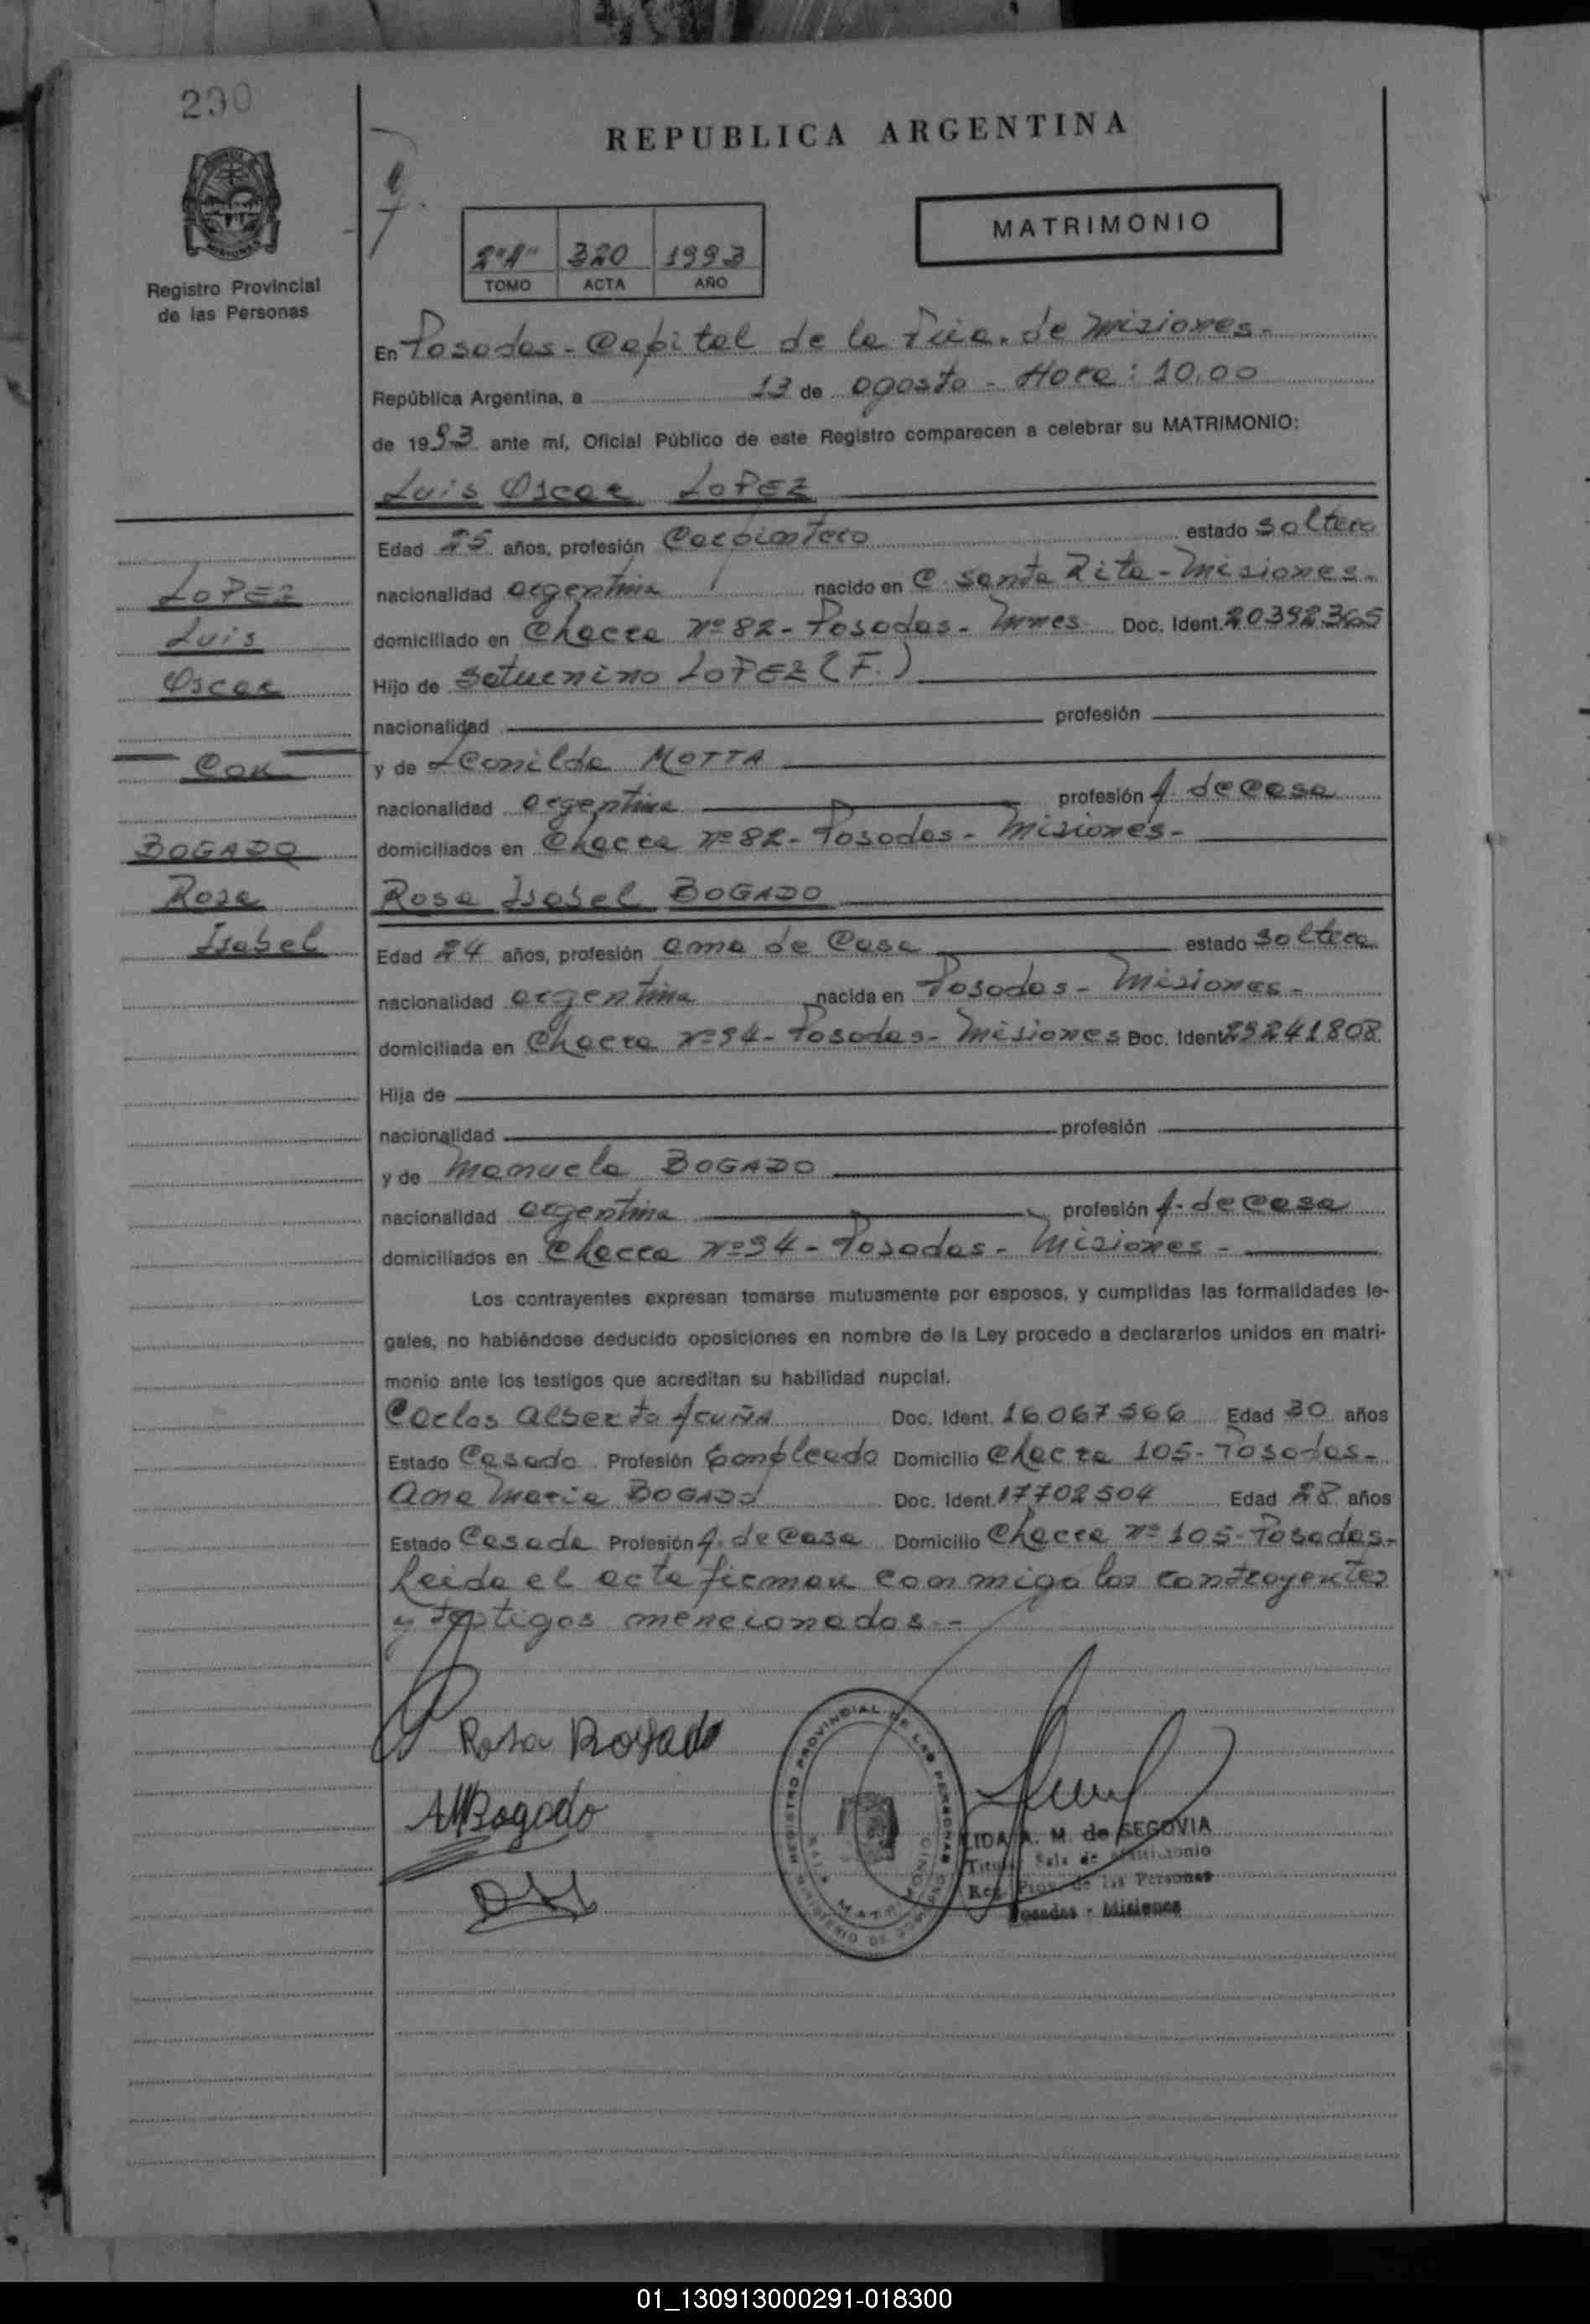 290
REPUBLICA ARGENTINA
MATRIMONIO
2"A" 320 1993
TOMO ACTA AÑO
Registro Provincial
de las Personas
En Posadas - Capital de la Pcia. de Misiones -
República Argentina, a 13 de agosto - Hora : 10.00
de 1993 ante mí, Oficial Público de este Registro comparecen a celebrar su MATRIMONIO:
Luis Oscar LOPEZ
Edad 25 años, profesión Carpintero estado soltero
nacionalidad argentina nacido en C. Santa Rita - Misiones -
domiciliado en Chacra Nº 82 - Posadas - Mnes Doc. Ident. 20.392.365
Hijo de Saturnino LOPEZ (F.)
nacionalidad profesión
y de Leonilda MOTTA
nacionalidad argentina profesión A. de casa
domiciliados en Chacra Nº 82 - Posadas - Misiones -
Rosa Isabel BOGADO
Edad 24 años, profesión ama de Casa estado soltera
nacionalidad argentina nacida en Posadas - Misiones -
domiciliada en Chacra Nº 94 - Posadas - Misiones Doc. Ident. 23241808
Hija de
nacionalidad profesión
y de Manuela BOGADO
nacionalidad argentina profesión A. de casa
domiciliados en Chacra Nº 94 - Posadas - Misiones -
Los contrayentes expresan tomarse mutuamente por esposos, y cumplidas las formalidades le-
gales, no habiéndose deducido oposiciones en nombre de la Ley procedo a declararlos unidos en matri-
monio ante los testigos que acreditan su habilidad nupcial.
Carlos Alberto Acuña Doc. Ident. 16.067.566 Edad 30 años
Estado Casado Profesión Empleado Domicilio Chacra 105 - Posadas -
Ana Maria BOGADO Doc. Ident. 17702504 Edad 28 años
Estado Casada Profesión A. de Casa Domicilio Chacra Nº 105 - Posadas -
Leida el acta firman conmigo los contrayentes
y testigos mencionados. -
LOPEZ
Luis
Oscar
Con
BOGADO
Rosa
Isabel
Rosa Bogado
AMBogado
REGISTRO PROVINCIAL DE LAS PERSONAS
MINISTERIO DE GOBIERNO
LIDA A. M. de SEGOVIA
Titular Sala de Matrimonio
Reg. Prov. de las Personas
Posadas - Misiones
01_130913000291-018300